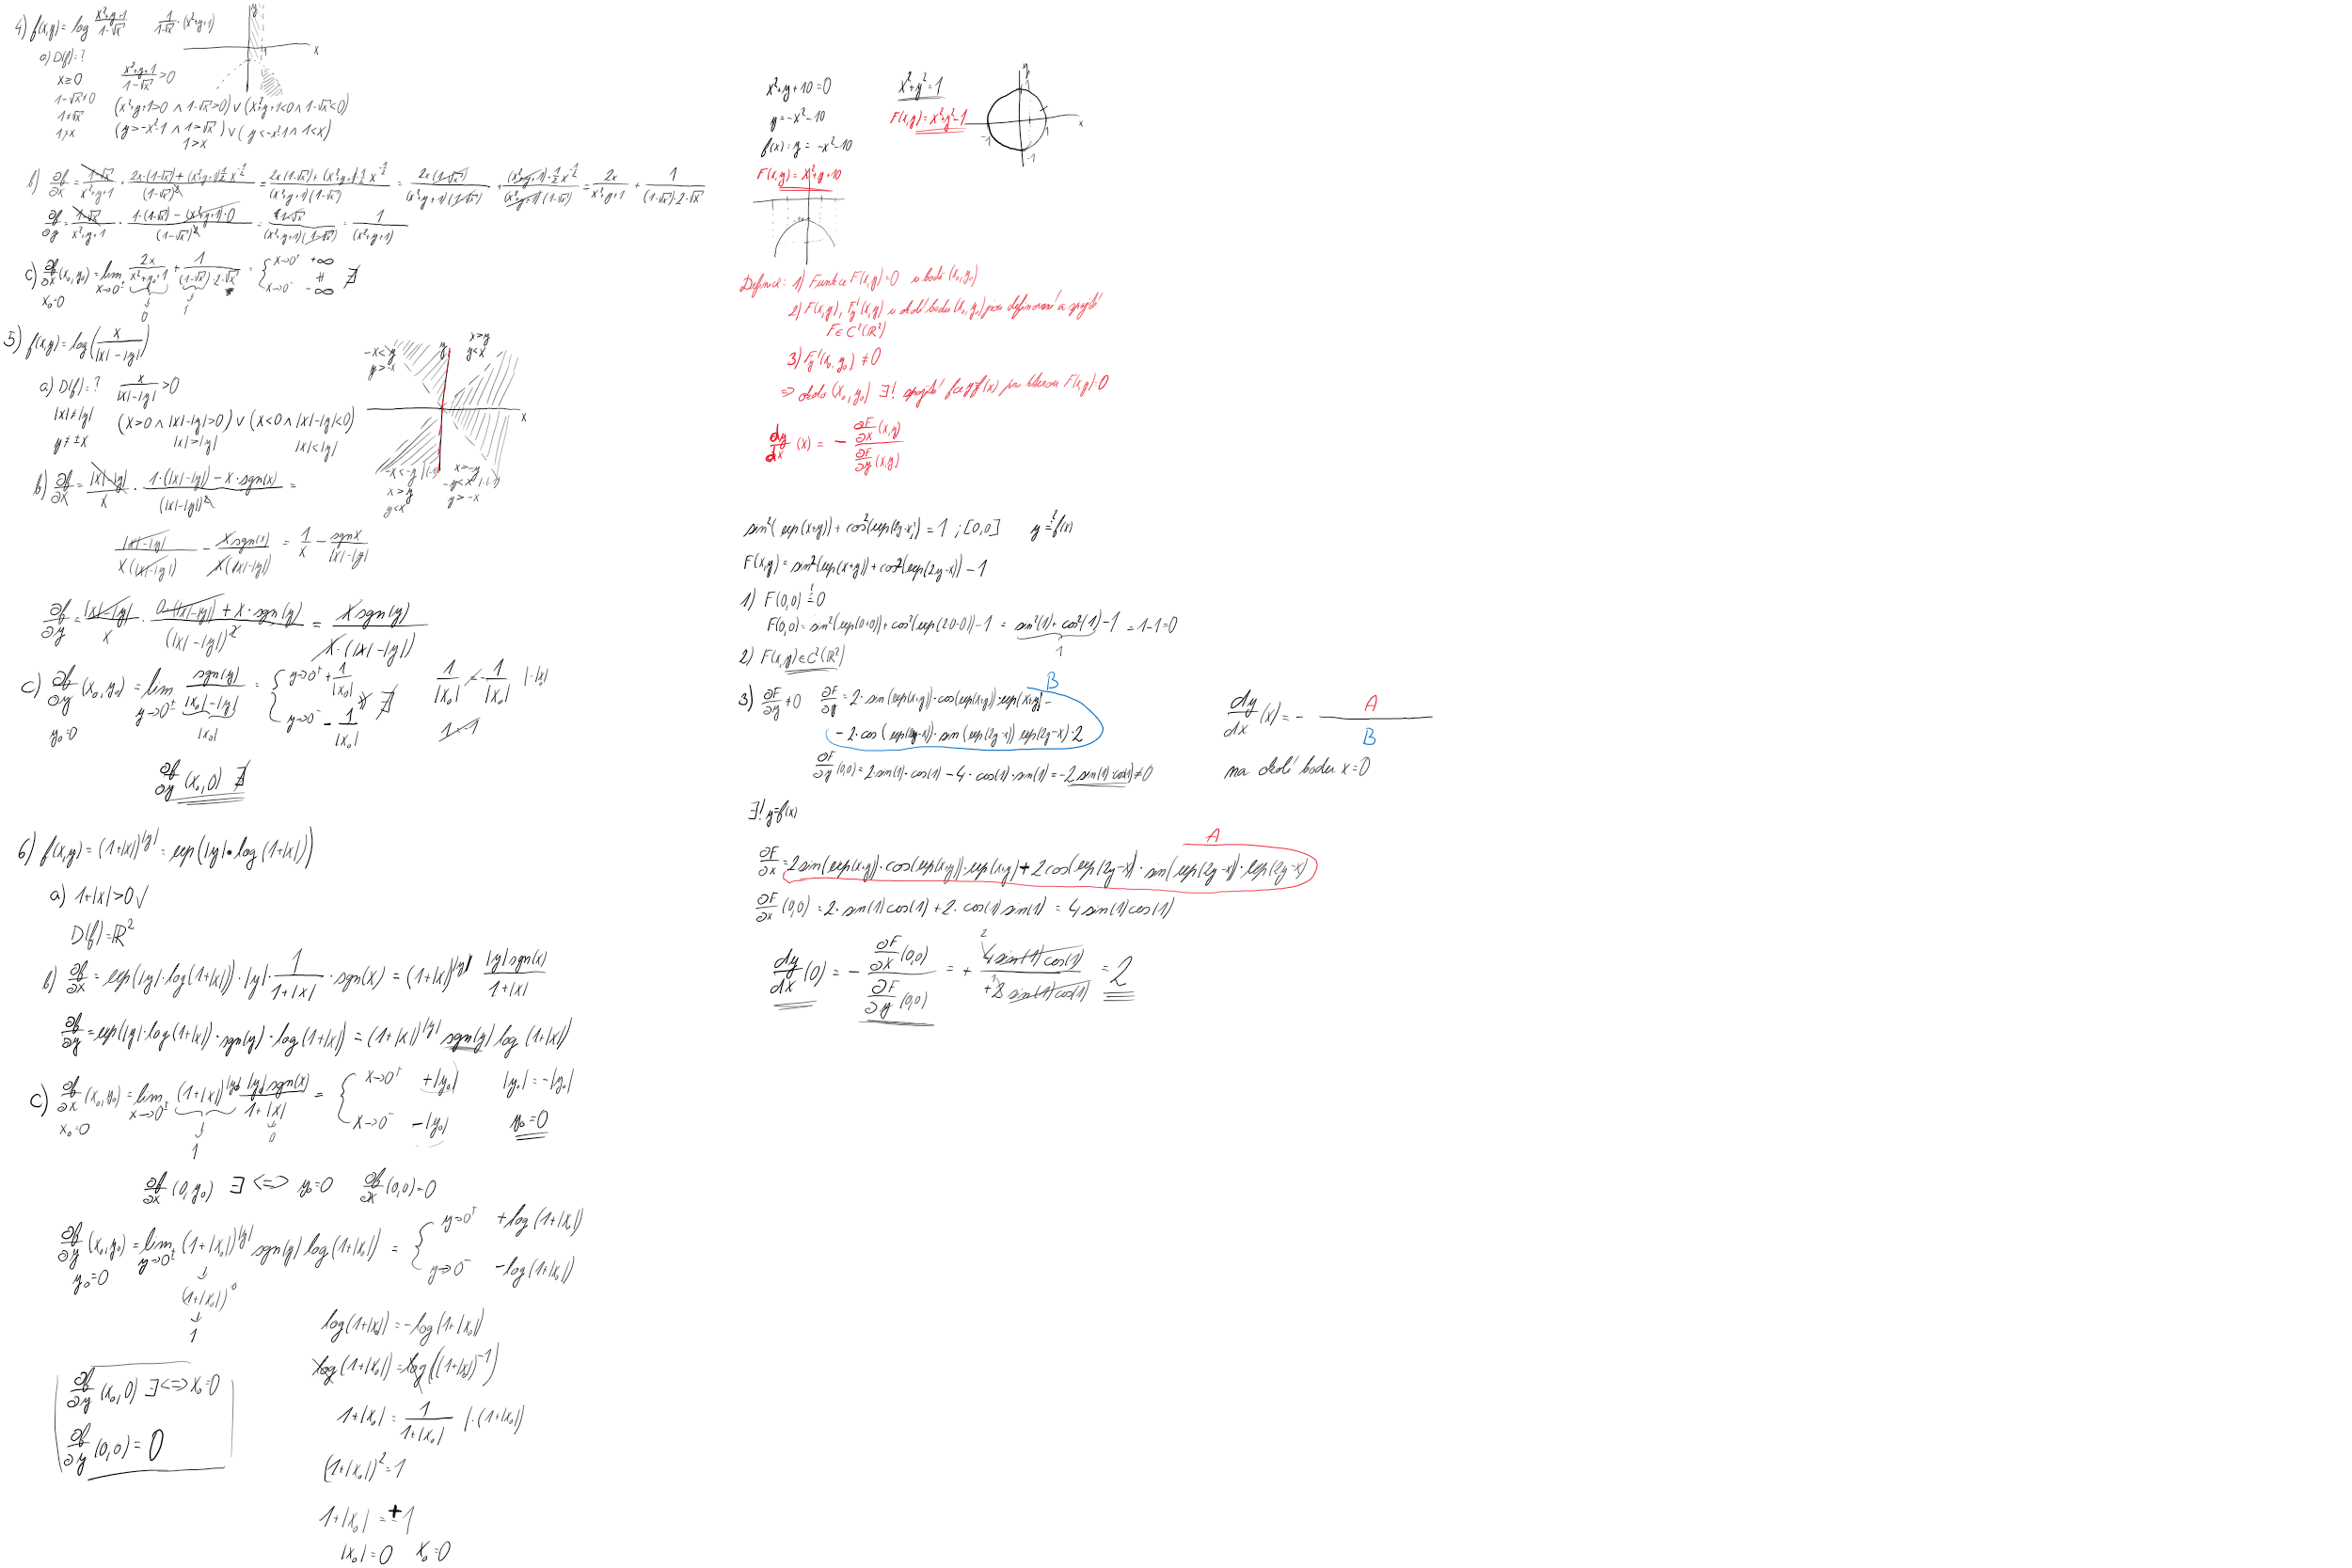 4) f(x,y) = log (x²+y+1)/(1-√x)   1/(1-√x) · (x²+y+1)
y
x
1
a) D(f) = ?
x ≥ 0   (x²+y+1)/(1-√x) > 0
1-√x ≠ 0   (x²+y+1>0 ∧ 1-√x>0) ∨ (x²+y+1<0 ∧ 1-√x<0)
1 ≠ √x   (y>-x²-1 ∧ 1>√x) ∨ (y<-x²-1 ∧ 1<x)
1 ≠ x   1>x
b) ∂f/∂x = (1-√x)/(x²+y+1) · (2x·(1-√x)+(x²+y+1)½x^(-½))/(1-√x)² = (2x(1-√x)+(x²+y+1)½x^(-½))/((x²+y+1)(1-√x)) = (2x(1-√x))/((x²+y+1)(1-√x)) + ((x²+y+1)·½x^(-½))/((x²+y+1)(1-√x)) = 2x/(x²+y+1) + 1/((1-√x)·2·√x)
∂f/∂y = (1-√x)/(x²+y+1) · (1·(1-√x)-(x²+y+1)·0)/(1-√x)² = (1-√x)/((x²+y+1)(1-√x)) = 1/(x²+y+1)
c) ∂f/∂x (x₀,y₀) = lim x→0± 2x/(x²+y₀+1) + 1/((1-√x)·2·√x) = { x→0⁺ +∞ ≠ x→0⁻ -∞ ∄
x₀=0   0   1
5) f(x,y) = log(x/(|x|-|y|))
a) D(f) = ?   x/(|x|-|y|) > 0
|x| ≠ |y|   (x>0 ∧ |x|-|y|>0) ∨ (x<0 ∧ |x|-|y|<0)
y ≠ ±x   |x|>|y|   |x|<|y|
-x<y
y>-x
y
x>y
y<x
x
-x<-y |·(-1)
x>y
y<x
x>-y
-y<x |·(-1)
y>-x
b) ∂f/∂x = (|x|-|y|)/x · (1·(|x|-|y|)-x·sgn(x))/(|x|-|y|)² =
(|x|-|y|)/(x(|x|-|y|)) - (x sgn(x))/(x(|x|-|y|)) = 1/x - sgn x/(|x|-|y|)
∂f/∂y = (|x|-|y|)/x · (0·(|x|-|y|)+x·sgn(y))/(|x|-|y|)² = (x sgn(y))/(x·(|x|-|y|))
c) ∂f/∂y (x₀,y₀) = lim y→0± sgn(y)/(|x₀|-|y|) = { y→0⁺ +1/|x₀| ≠ y→0⁻ -1/|x₀| ∄   1/|x₀| ≠ -1/|x₀|   |·|x₀|
y₀=0   |x₀|   1≠-1
∂f/∂y (x₀,0) ∄
6) f(x,y) = (1+|x|)^|y| = exp(|y|·log(1+|x|))
a) 1+|x|>0 ✓
D(f)=ℝ²
b) ∂f/∂x = exp(|y|·log(1+|x|))·|y|·1/(1+|x|)·sgn(x) = (1+|x|)^|y| (|y| sgn(x))/(1+|x|)
∂f/∂y = exp(|y|·log(1+|x|))·sgn(y)·log(1+|x|) = (1+|x|)^|y| sgn(y) log(1+|x|)
c) ∂f/∂x (x₀,y₀) = lim x→0± (1+|x|)^|y₀| (|y₀| sgn(x))/(1+|x|) = { x→0⁺ +|y₀|   x→0⁻ -|y₀|   |y₀| = -|y₀|
x₀=0   1   0   y₀=0
∂f/∂x (0,y₀) ∃ ⟺ y₀=0   ∂f/∂x (0,0)=0
∂f/∂y (x₀,y₀) = lim y→0± (1+|x₀|)^|y| sgn(y) log(1+|x₀|) = { y→0⁺ +log(1+|x₀|)   y→0⁻ -log(1+|x₀|)
y₀=0   (1+|x₀|)⁰
1
log(1+|x₀|) = -log(1+|x₀|)
log(1+|x₀|) = log((1+|x₀|)⁻¹)
1+|x₀| = 1/(1+|x₀|)   |·(1+|x₀|)
(1+|x₀|)² = 1
1+|x₀| = ±1
|x₀|=0   x₀=0
∂f/∂y (x₀,0) ∃ ⟺ x₀=0
∂f/∂y (0,0) = 0
x²+y+10=0
y=-x²-10
f(x)=y=-x²-10
F(x,y)=x²+y+10
x²+y²=1
F(x,y)=x²+y²-1
y
1
-1
1
x
-1
Definice: 1) Funkce F(x,y)=0 v bodě (x₀,y₀)
2) F(x,y), F'y(x,y) v okolí bodu (x₀,y₀) jsou definované a spojité
F∈C¹(ℝ²)
3) F'y(x₀,y₀) ≠ 0
⇒ okolo (x₀,y₀) ∃! spojitá fce y=f(x) pro kterou F(x,y)=0
dy/dx (x) = - (∂F/∂x (x,y))/(∂F/∂y (x,y))
sin²(exp(x+y)) + cos²(exp(2y-x)) = 1 ; [0,0]   y ≟ f(x)
F(x,y) = sin²(exp(x+y)) + cos²(exp(2y-x)) - 1
1) F(0,0) =! 0
F(0,0) = sin²(exp(0+0)) + cos²(exp(2·0-0)) - 1 = sin²(1)+cos²(1) - 1 = 1-1=0
1
2) F(x,y)∈C¹(ℝ²)
B
3) ∂F/∂y ≠ 0   ∂F/∂y = 2·sin(exp(x+y))·cos(exp(x+y))·exp(x+y) -
- 2·cos(exp(2y-x))·sin(exp(2y-x)) exp(2y-x)·2
∂F/∂y (0,0) = 2·sin(1)·cos(1) - 4·cos(1)·sin(1) = -2 sin(1)·cos(1) ≠ 0
dy/dx (x) = - A/B
na okolí bodu x=0
∃! y=f(x)
A
∂F/∂x = 2 sin(exp(x+y))·cos(exp(x+y))·exp(x+y) + 2 cos(exp(2y-x))·sin(exp(2y-x))·exp(2y-x)
∂F/∂x (0,0) = 2·sin(1)cos(1) + 2·cos(1)sin(1) = 4 sin(1)cos(1)
dy/dx (0) = - (∂F/∂x (0,0))/(∂F/∂y (0,0)) = + (4 sin(1)cos(1))/(+2 sin(1)cos(1)) = 2